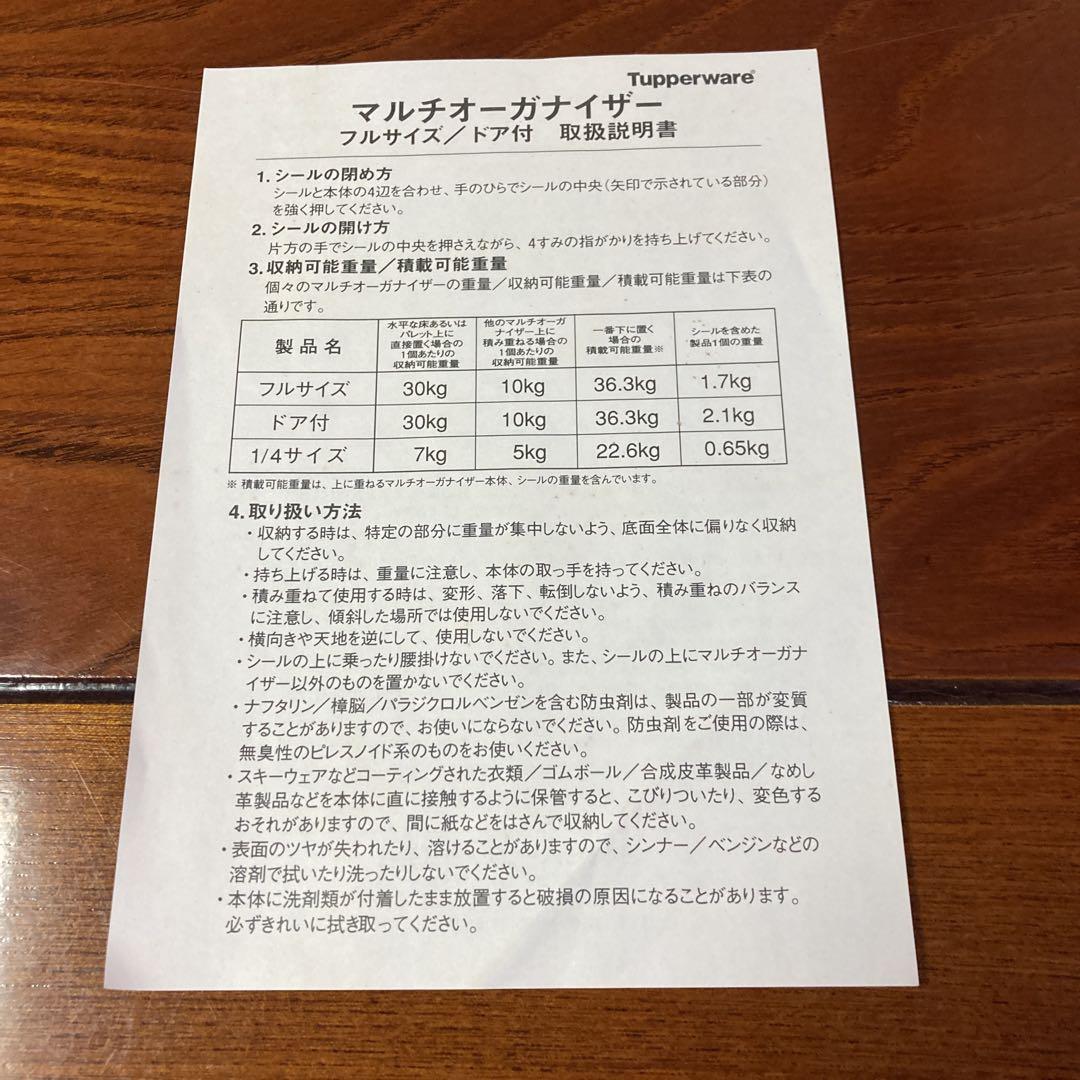 Tupperware®
マルチオーガナイザー
フルサイズ／ドア付　取扱説明書
1. シールの閉め方
シールと本体の4辺を合わせ、手のひらでシールの中央（矢印で示されている部分）
を強く押してください。
2. シールの開け方
片方の手でシールの中央を押さえながら、4すみの指がかりを持ち上げてください。
3. 収納可能重量／積載可能重量
個々のマルチオーガナイザーの重量／収納可能重量／積載可能重量は下表の
通りです。
製品名
水平な床あるいは
パレット上に
直接置く場合の
1個あたりの
収納可能重量
他のマルチオーガ
ナイザー上に
積み重ねる場合の
1個あたりの
収納可能重量
一番下に置く
場合の
積載可能重量※
シールを含めた
製品1個の重量
フルサイズ 30kg 10kg 36.3kg 1.7kg
ドア付 30kg 10kg 36.3kg 2.1kg
1/4サイズ 7kg 5kg 22.6kg 0.65kg
※ 積載可能重量は、上に重ねるマルチオーガナイザー本体、シールの重量を含んでいます。
4. 取り扱い方法
・収納する時は、特定の部分に重量が集中しないよう、底面全体に偏りなく収納
してください。
・持ち上げる時は、重量に注意し、本体の取っ手を持ってください。
・積み重ねて使用する時は、変形、落下、転倒しないよう、積み重ねのバランス
に注意し、傾斜した場所では使用しないでください。
・横向きや天地を逆にして、使用しないでください。
・シールの上に乗ったり腰掛けないでください。また、シールの上にマルチオーガナ
イザー以外のものを置かないでください。
・ナフタリン／樟脳／パラジクロルベンゼンを含む防虫剤は、製品の一部が変質
することがありますので、お使いにならないでください。防虫剤をご使用の際は、
無臭性のピレスノイド系のものをお使いください。
・スキーウェアなどコーティングされた衣類／ゴムボール／合成皮革製品／なめし
革製品などを本体に直に接触するように保管すると、こびりついたり、変色する
おそれがありますので、間に紙などをはさんで収納してください。
・表面のツヤが失われたり、溶けることがありますので、シンナー／ベンジンなどの
溶剤で拭いたり洗ったりしないでください。
・本体に洗剤類が付着したまま放置すると破損の原因になることがあります。
必ずきれいに拭き取ってください。